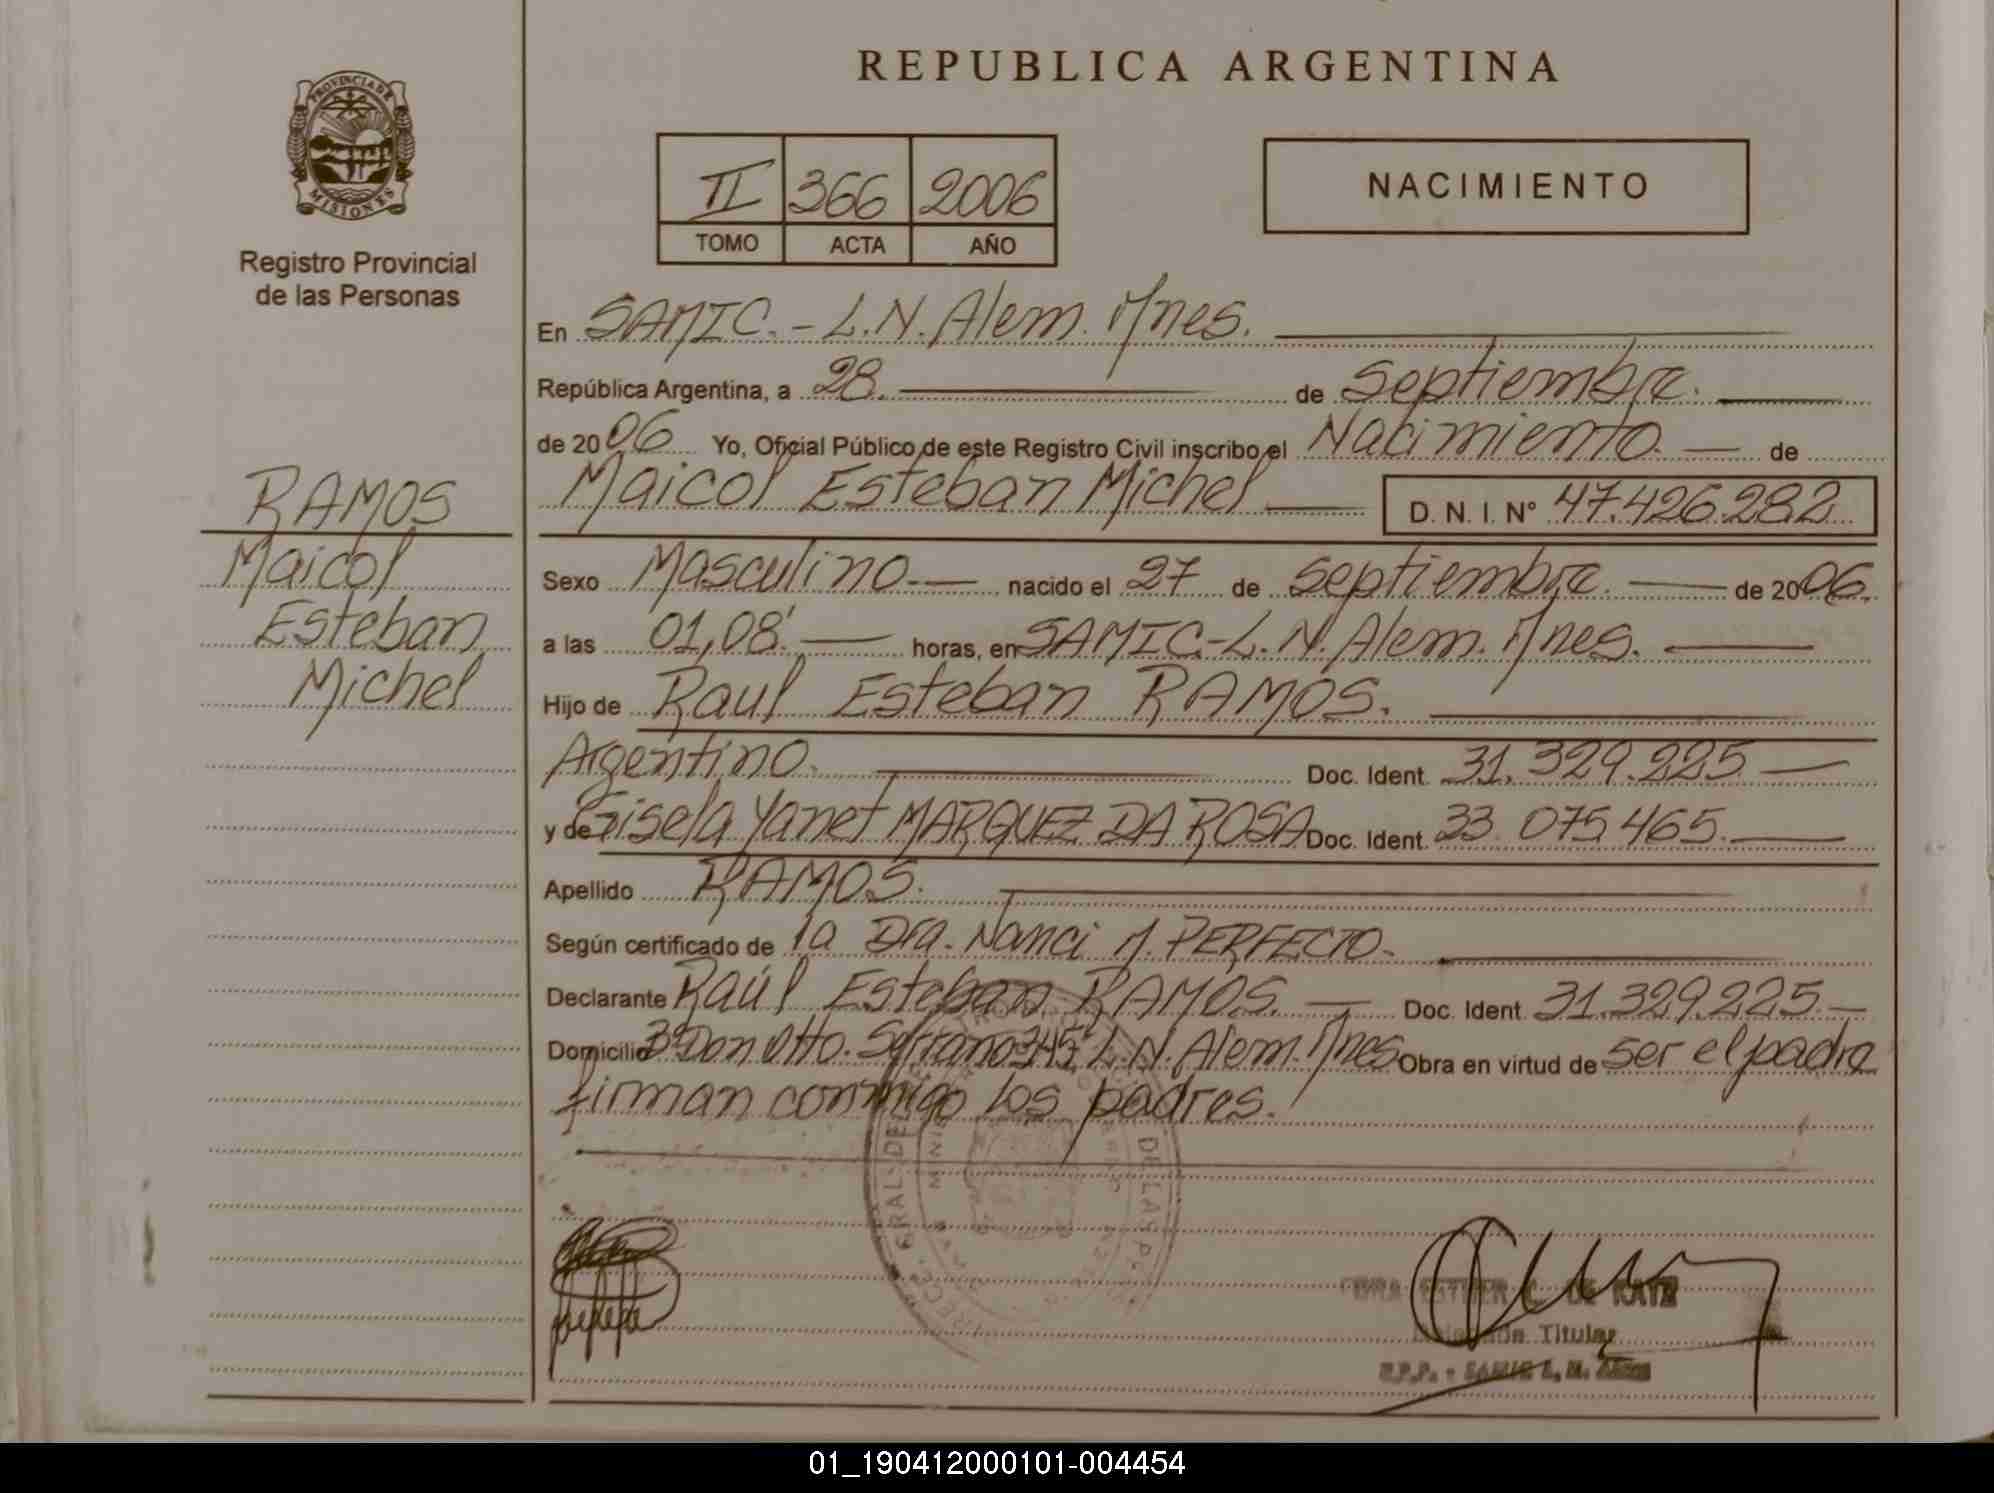 PROVINCIA DE
MISIONES
Registro Provincial
de las Personas
RAMOS
Maicol
Esteban
Michel
REPUBLICA ARGENTINA
II 366 2006
TOMO ACTA AÑO
NACIMIENTO
En SAMIC.- L.N. Alem. Mnes.
República Argentina, a 28. de Septiembre.
de 2006 Yo, Oficial Público de este Registro Civil inscribo el Nacimiento de
Maicol Esteban Michel D. N. I. Nº 47.426.282
Sexo Masculino.- nacido el 27 de Septiembre. de 2006.
a las 01,08'. horas, en SAMIC.-L.N. Alem. Mnes.
Hijo de Raul Esteban RAMOS.
Argentino. Doc. Ident. 31.329.225
y de Gisela Yanet MARQUEZ DA ROSA Doc. Ident. 33.075.465.
Apellido RAMOS.
Según certificado de la Dra. Nanci M. PERFECTO.
Declarante Raúl Esteban RAMOS. Doc. Ident. 31.329.225
Domicilio Bº Don Otto. Serrano 345 L.N. Alem. Mnes Obra en virtud de ser el padre
firman conmigo los padres.
DE LAS
ESTHER C. DE KATZ
Titular
R.P.P. - SAMIC L. N. Alem
01_190412000101-004454